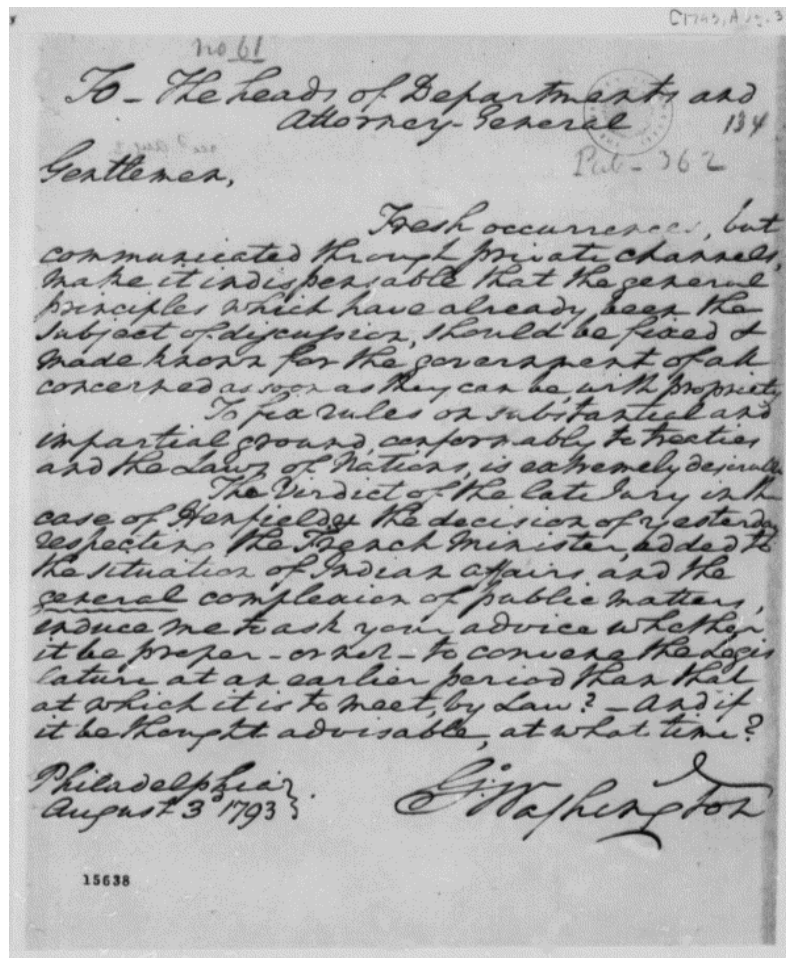 C1793, Aug. 3
no 61
To – The heads of Departments and
Attorney-General
134
Pub – 362
Gentlemen,
Fresh occurrences, but
communicated through private channels,
make it indispensable that the general
principles which have already been the
subject of discussion, should be fixed &
made known for the government of all
concerned as soon as they can be, with propriety
To fix rules on substantial and
impartial ground, conformably to treaties
and the Laws of Nations, is extremely desirable
The Verdict of the late Jury in the
case of Henfield, & the decision of yesterday
respecting the French Minister, added to
the situation of Indian affairs, and the
general complexion of public matters,
induce me to ask your advice whether
it be proper – or not – to convene the Legis
lature at an earlier period than that
at which it is to meet, by Law? – And if
it be thought advisable, at what time?
Philadelphia
August 3d 1793
Go: Washington
15638